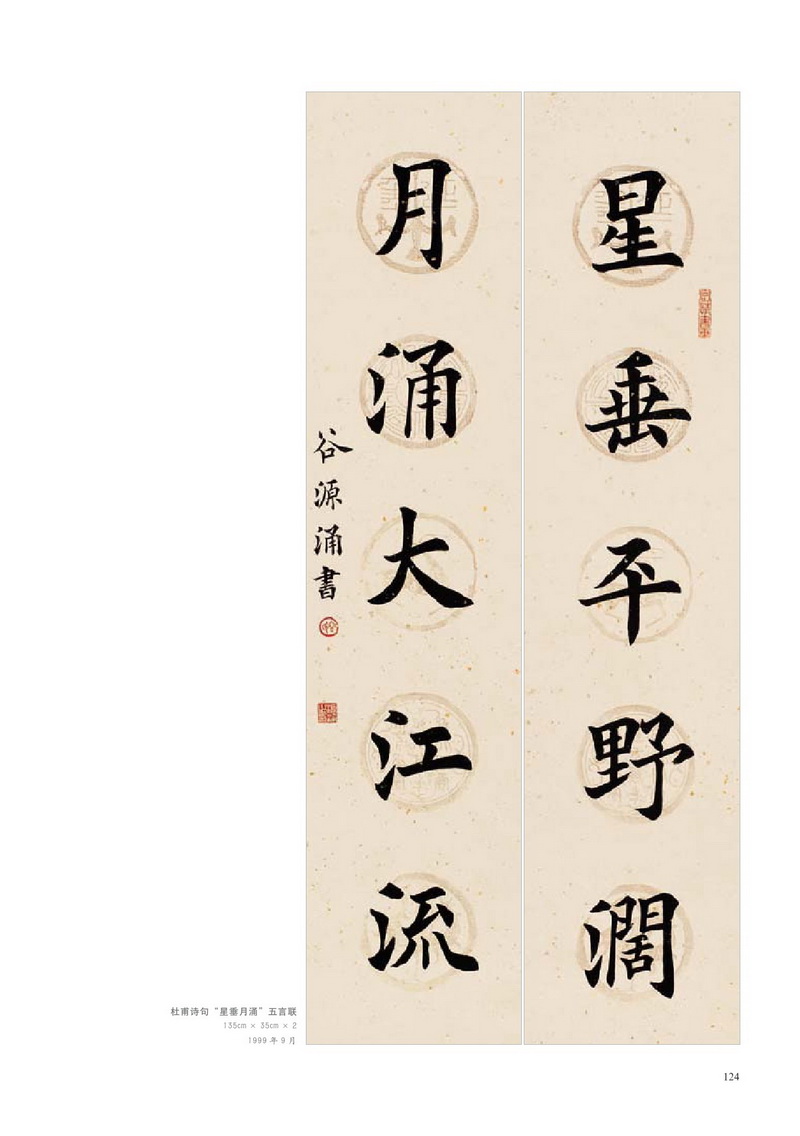 星垂平野濶
月涌大江流
谷源涌書
杜甫诗句“星垂月涌”五言联
135cm × 35cm × 2
1999 年 9 月
124